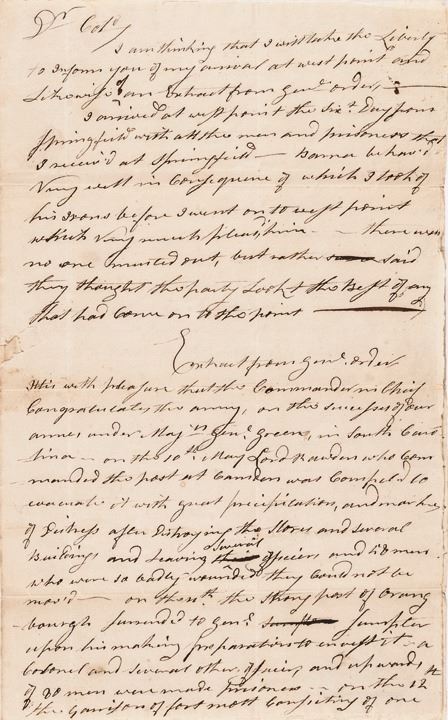 Dr Colo
I am thinking that I will take the Liberty
to Inform you of my arrival at west point and
Likewise of an Extract from Genl order,
I arrived at west point the Sixt Day from
Springfield with all the men and prisoners that
I receivd at Springfield — behav'd
Very well in Consequence of which I took of
his Irons before I went on to west point
which Very much pleasd him — there was
no one musterd out, but rather said
they thought the party Lookt the Best of any
that had Come on to the point
Extract from Genl order
It is with pleasure that the Commander in Chief
Congratulates the army, on the successes of our
armes under Majr Genl Green, in South Caro
lina — on the 10th May Lord Rawden who Com
manded the post at Camden was Compeld to
evacuate it with great precipitation, and markes
of Distress after Distroying the Stores and Several
Buildings and Leaving Several officers and 58 men
who were so badly wounded they Could not be
mov'd — on the 11th the Strong post of Orang
bourgh Surrended to Genl Sumpter
upon his making preparations to invest it — a
Colonel and Several other officers, and upwards
of 80 men were made prisoners — on the 12th
the Garrison of fort mott Consisting of one